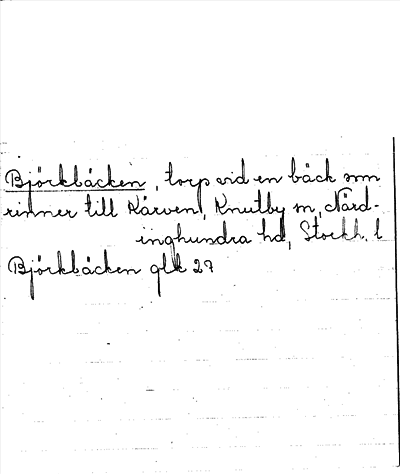 Björkbäcken, torp vid en bäck som
rinner till Kärven, Knutby sn, Närd-
inghundra hd, Stockh. l
Björkbäcken glk 27